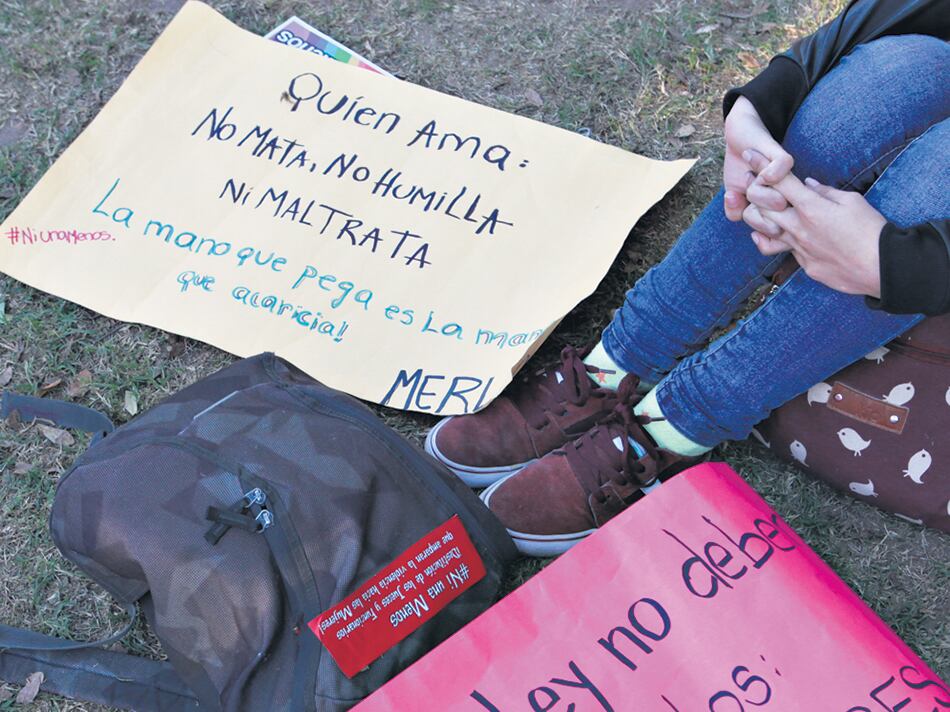 menos
QUíen Ama:
No MATA, No HUMILLA
Ni MALTRATA
La mano que pega es La mano
#NiUnaMenos.
que acaricia!
#Ni una Menos
¡Destitución de los Jueces y Funcionarios
que amparan la violencia hacia las Mujeres!
Ley no debe